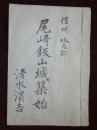 信州水内郡
尾崎飯山城築始
清水濱吉